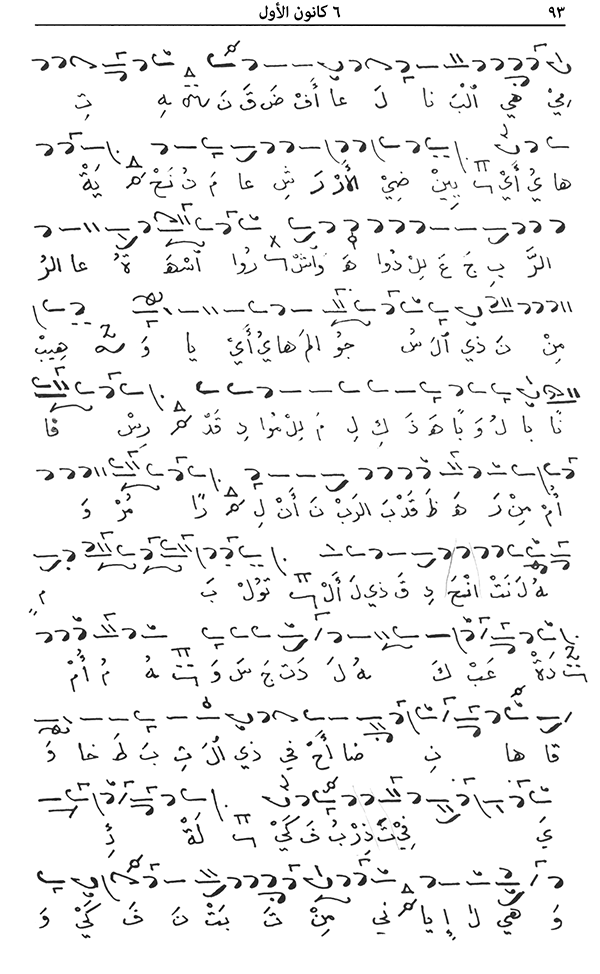 ٩٣ ٦ كانون الأول
مِيْ هِي الْبَ نا لَ عا أَفْ ضَ قَ نَ هِ تِ
هايُ أَيْ يِيْنْ ضِيْ الأَرْ رَ شِ عا مَ نُ نَحْ يَةْ
الرَّ بِ جَ عَ لِلْ ذوا هَ وَاشْ رُوا أَسْهَ ةُ عا الرُ
مِنْ نَ ذي الَ سُ جو الَم هايُ أَيْ يا وَ هِيبْ
نًا با لُ وَ بًا هَ ذَ كَ لِ مَ لِلْ مُوا دِ قَدْ رِسْ فا
أُمْ مِنْ رَ هَ ظَ قَدْ بَ الرَبْ نَ أَنْ لِ رًا مُرْ وَ
هُ لَ نَتْ انْحَ دِ قَ ذي لَ أَلْ تولْ بَ مِ
دَةْ عَبْ كَ هُ لَ دَتْ جَ سَ وَ هُ مُ أُمْ
قا ها نِ ضا أَحْ في ذي الَ تِ بَ طَ خا وَ
يَ فِيْ تَ ذِرْ بُ فَ كَيْ لَةْ إِ
وَ هِيْ لا إِيا ني مِنْ تَ بَتْ نَ فَ كَيْ وَ